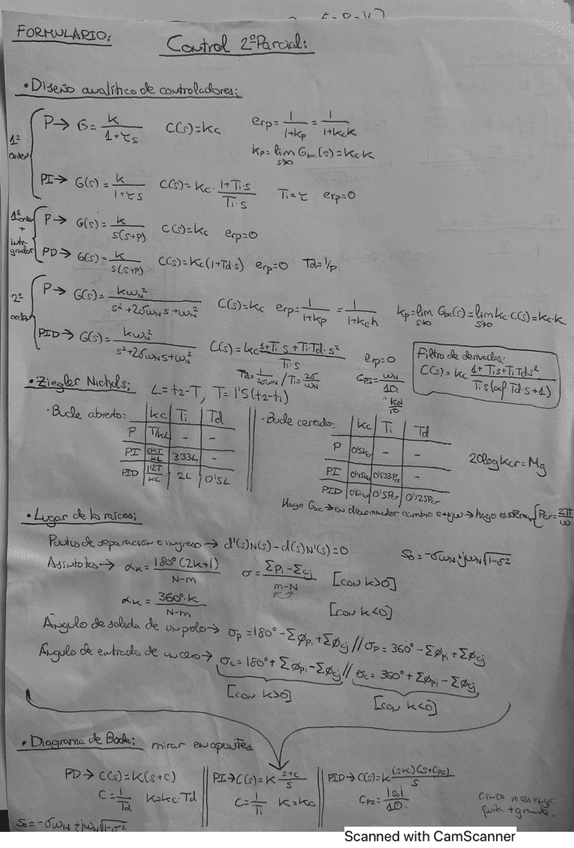 FORMULARIO:
Control 2º Parcial:
• Diseño analítico de controladores:
1er orden
P → G = k/(1+τs)   C(s) = kc   erp = 1/(1+kp) = 1/(1+kc k)
kp = lim s→0 Gbc(s) = kc·k
PI → G(s) = k/(1+τs)   C(s) = kc · (1+Ti·s)/(Ti·s)   Ti = τ   erp=0
1er orden + integrador
P → G(s) = k/(s(s+p))   C(s) = kc   erp=0
PD → G(s) = k/(s(s+p))   C(s) = kc(1+Td·s)   erp=0   Td = 1/p
2º orden
P → G(s) = kωn²/(s²+2σωns+ωn²)   C(s)=kc   erp = 1/(1+kp) = 1/(1+kck)   kp = lim s→0 Gbc(s) = lim s→0 kc·C(s) = kc·k
PID → G(s) = kωn²/(s²+2σωns+ωn²)   C(s) = kc (1+Ti·s+Ti·Td·s²)/(Ti·s)   erp=0
Td = 1/(2σωn) / Ti = 2σ/ωn
Filtro de derivada:
C(s) = kc (1+Tis+TiTds²)/(Tis(αf Td·s+1))
• Ziegler Nichols: L = t2-T, T = 1'5(t2-t1)
- Bucle abierto:   kc   Ti   Td
P   T/kL   -   -
PI   0'9T/kL   3'33L   -
PID   1'2T/kL   2L   0'5L
- Bucle cerrado:   kc   Ti   Td
P   0'5kcr   -   -
PI   0'45kcr   0'833Pcr   -
PID   0'6kcr   0'5Pcr   0'125Pcr
20logkcr = Mg
Hago Gbc → en denominador cambio s→jω → hago sistema { Pcr = 2π/ω
• Lugar de las raíces:
Puntos de separación e ingreso → d'(s)N(s) - d(s)N'(s) = 0
So = -σωn ± jωn√1-σ²
Asíntotas → αk = 180°(2k+1)/(N-m)   σ = (Σpi - Σcj)/(m-N)   [con k>0]
αk = 360°·k/(N-m)   [con k<0]
Ángulo de salida de un polo → σp = 180° - Σφpi + Σφcj // σp = 360° - Σφpi + Σφcj
Ángulo de entrada de un cero → σc = 180° + Σφpi - Σφcj // σc = 360° + Σφpi - Σφcj
[con k>0]   [con k<0]
• Diagrama de Bode: mirar en apuntes
PD → C(s) = k(s+c)   PI → C(s) = k (s+c)/s   PID → C(s) = k (s+c)(s+cPI)/s
C = 1/Td   k = kc·Td   C = 1/Ti   k = kc   CPI = |σ|/10
So = -σωn + jωn√1-σ²
Scanned with CamScanner